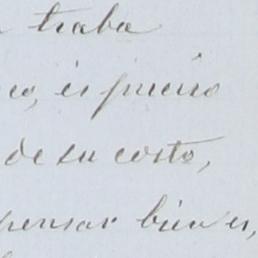 traba
es preciso
de su costo,
pensar bien es,